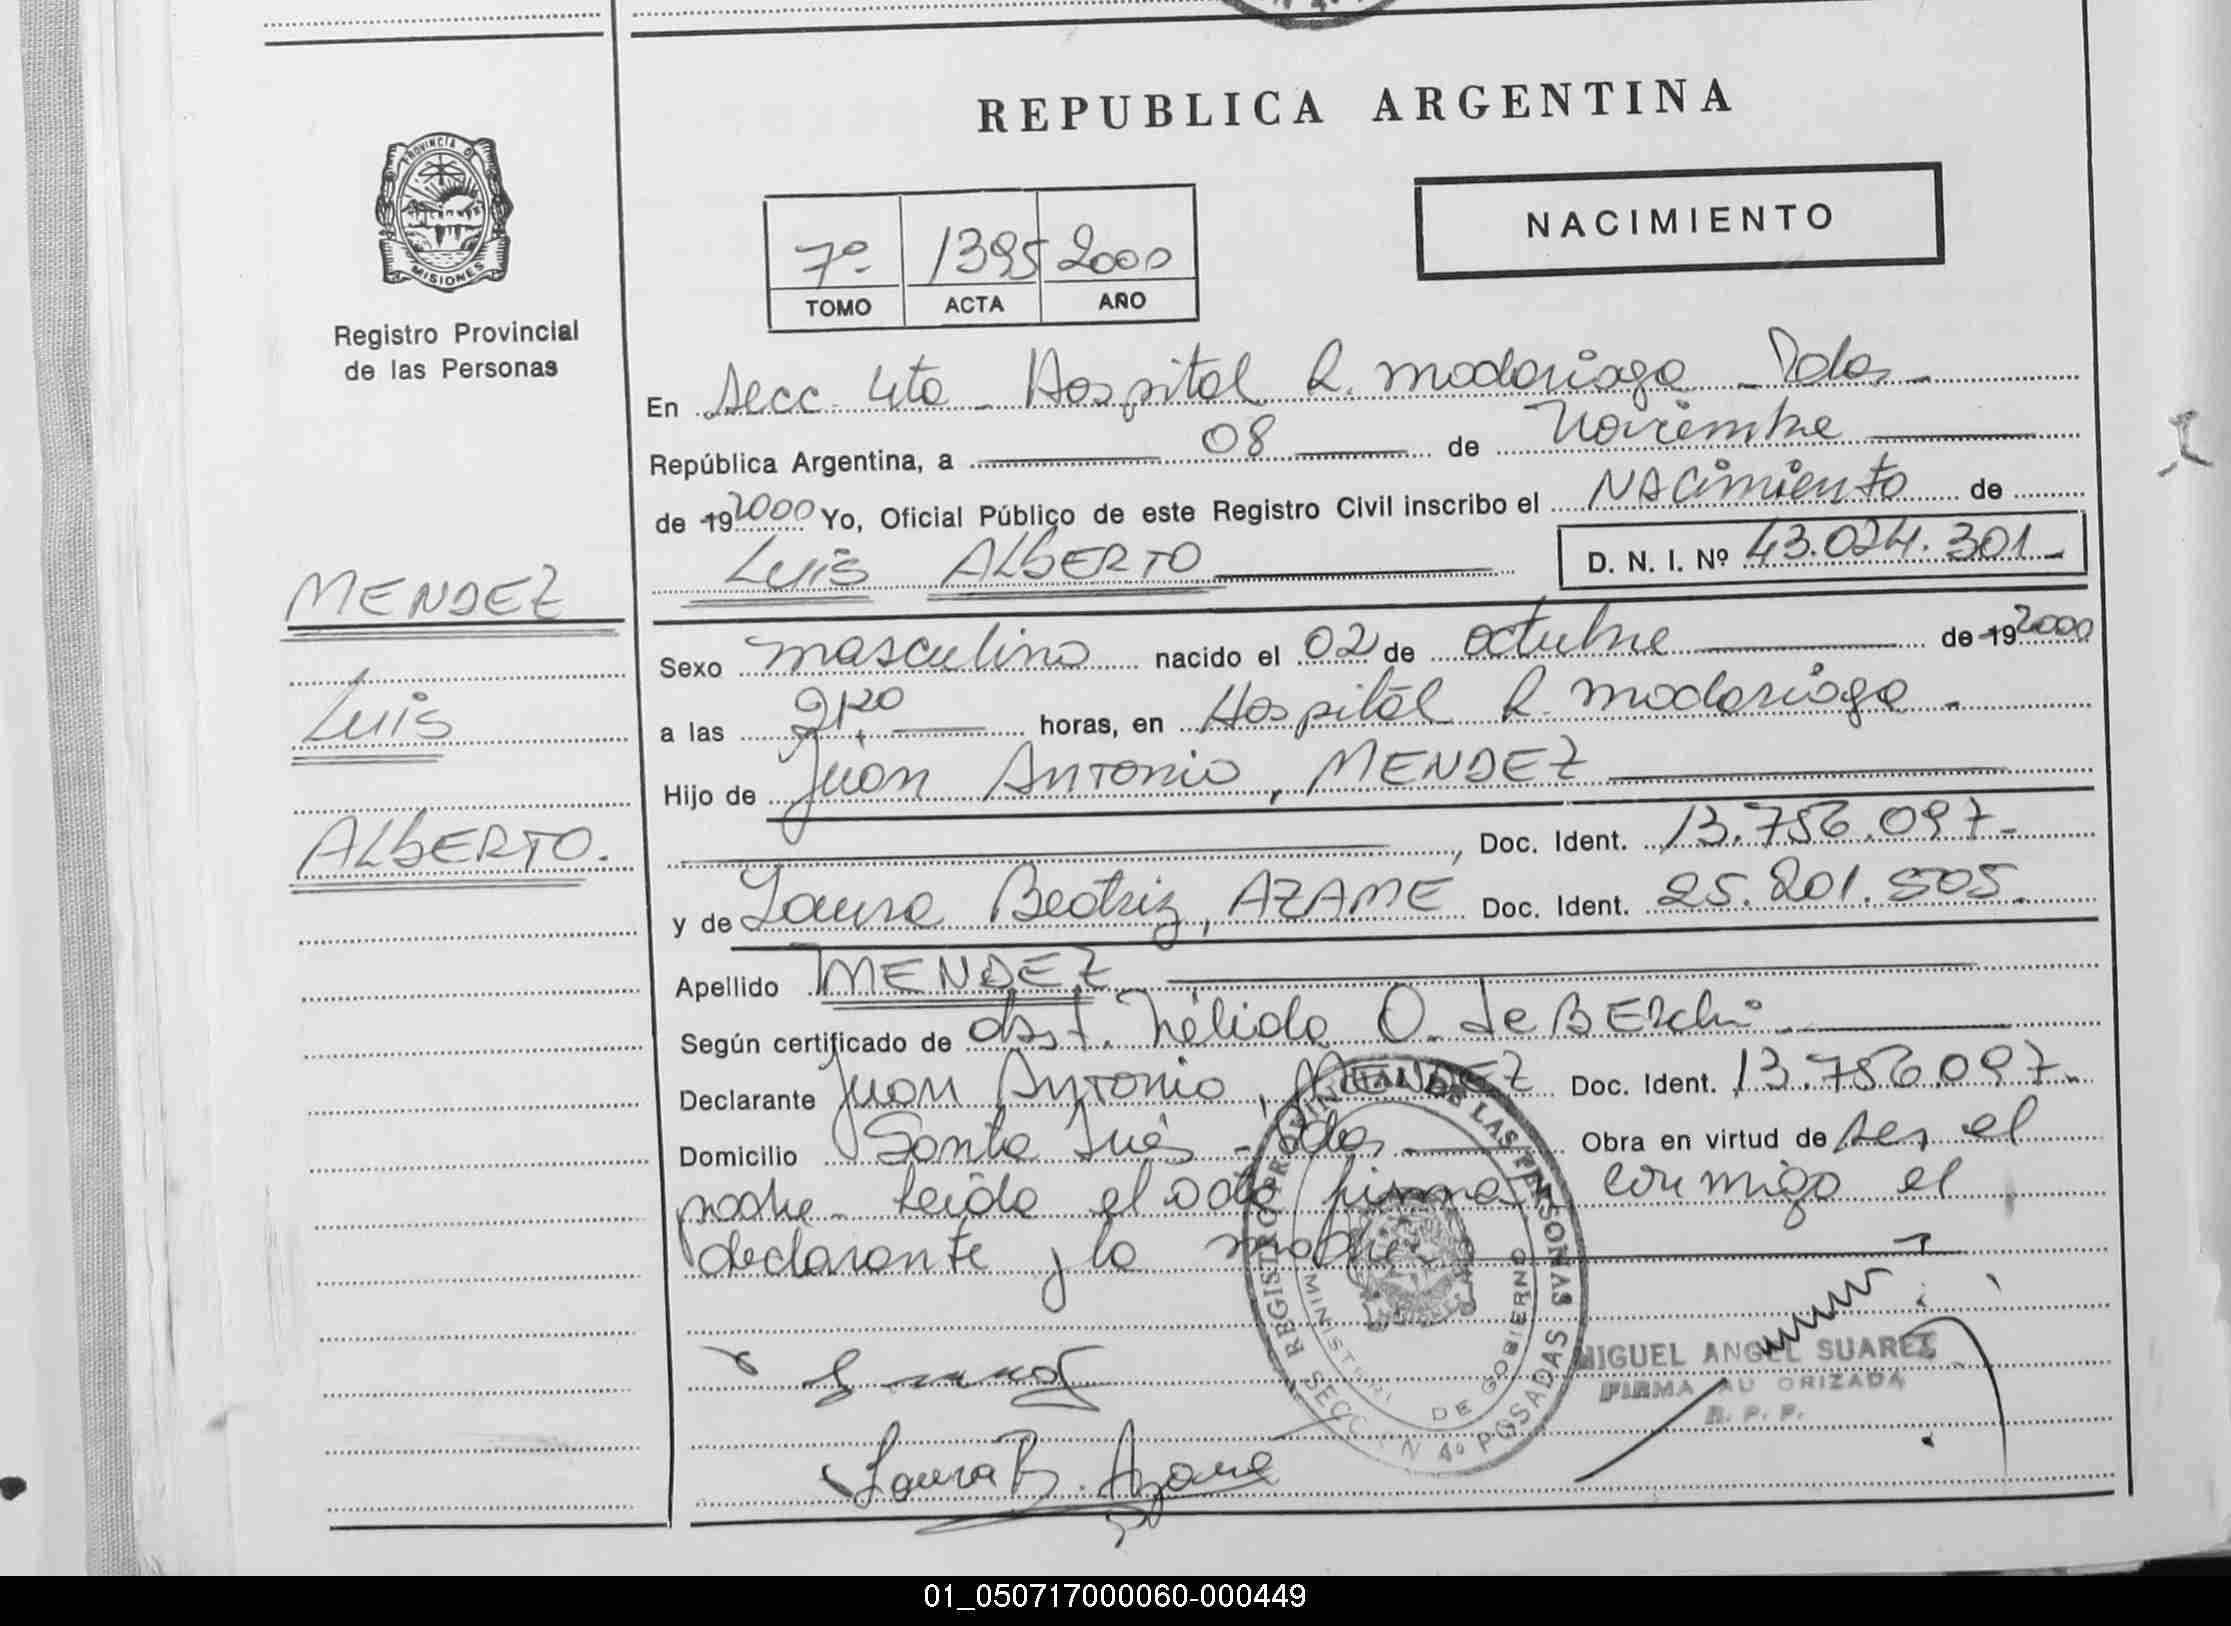 REPUBLICA ARGENTINA
PROVINCIA DE
MISIONES
Registro Provincial
de las Personas
NACIMIENTO
7º 1395 2000
TOMO ACTA AÑO
En Secc. 4ta - Hospital R. Madariaga - Pdas -
República Argentina, a 08 de Noviembre
de 19 2000 Yo, Oficial Público de este Registro Civil inscribo el NACimiento de
Luis ALBERTO D. N. I. Nº 43.024.301
MENDEZ
Luis
ALBERTO.
Sexo masculino nacido el 02 de octubre de 19 2000
a las horas, en Hospital R. Madariaga -
Hijo de Juan Antonio, MENDEZ
, Doc. Ident. 13.756.097-
y de Laura Beatriz, AZAME Doc. Ident. 25.201.505.
Apellido MENDEZ
Según certificado de obst. Nélida O. de
Declarante Juan Antonio, MENDEZ Doc. Ident. 13.756.097-
Domicilio Santa Inés - Pdas Obra en virtud de ser el
padre - leída el acta firma conmigo el
declarante y la madre
REGISTRO PROVINCIAL DE LAS PERSONAS
MINISTERIO DE GOBIERNO
SECCION 4º POSADAS
MIGUEL ANGEL SUAREZ
FIRMA AUTORIZADA
R. P. P.
Laura B. Azame
01_050717000060-000449